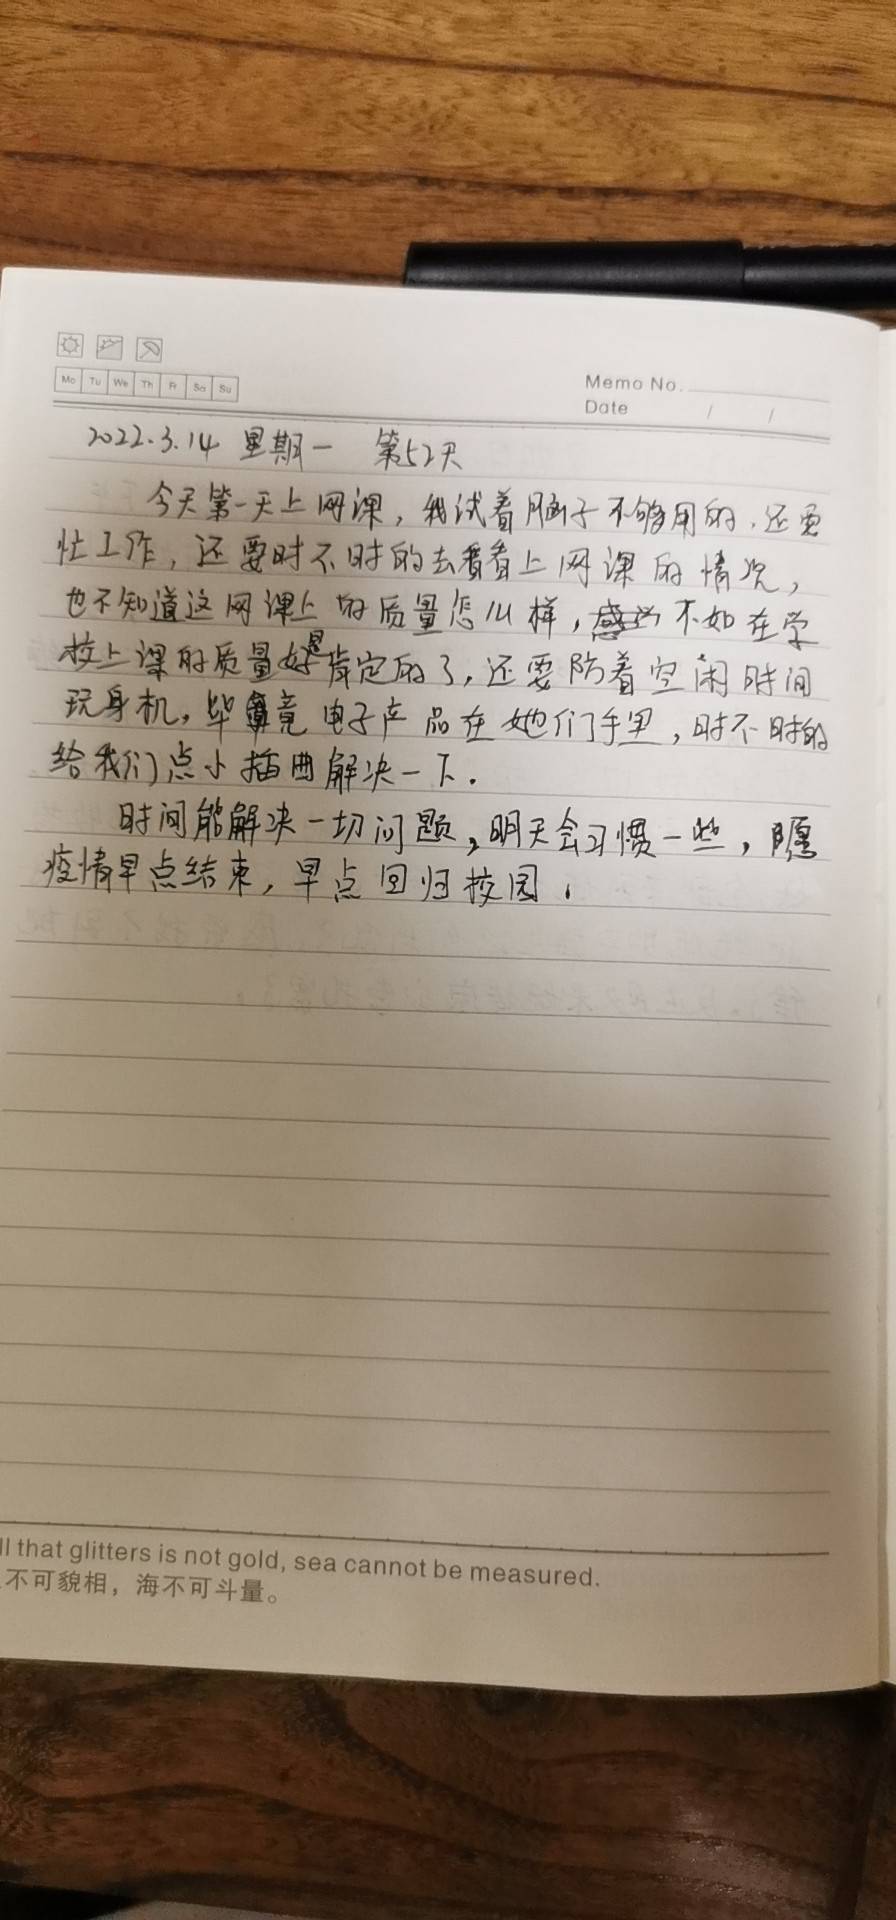 Mo Tu We Th Fr Sa Su
Memo No.
Date / /
2022.3.14 星期一 第52天
今天第一天上网课，我试着脑子不够用的，还要
忙工作，还要时不时的去看看上网课的情况，
也不知道这网课上的质量怎么样，感觉不如在学
校上课的质量好是肯定的了，还要防着空闲时间
玩手机，毕竟电子产品在她们手里，时不时的
给我们点小插曲解决一下．
时间能解决一切问题，明天会习惯一些，愿
疫情早点结束，早点回归校园．
ll that glitters is not gold, sea cannot be measured.
不可貌相，海不可斗量。